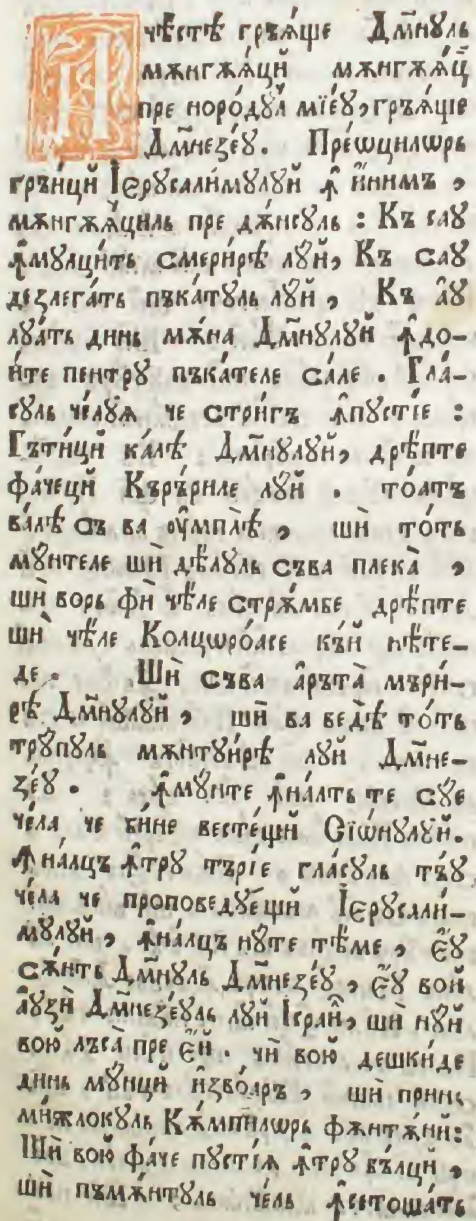 Ачѣстѣ грѣѧще Дм҃нꙋль
мѫнгѫѧцй мѫнгѫѧц̾
пре нородꙋл мїеꙋ, грѣѧще
Дм҃незеꙋ. Преѡцилѡрь
грѣицй Їерꙋсалимꙋлꙋй ꙟ инимъ,
мѫнгѫѧциль пре дѫнсꙋль : Къ саꙋ
ꙟмꙋлцить смерирѣ лꙋй, Къ саꙋ
дезлегать пъкатꙋль лꙋй, Къ аꙋ
лꙋать динь мѫна Дм҃нꙋлꙋй ꙟдо-
ите пентрꙋ пъкателе сале. Гла-
сꙋль челꙋѧ че стригъ ꙟпꙋстїе :
Гътицй калѣ Дм҃нꙋлꙋй, дрѣпте
фачецй Къръриле лꙋй. тоатъ
валѣ съ ва оумплѣ, шй тоть
мꙋнтеле шй дѣлꙋль съва плека,
шй ворь фй чѣле стрѫмбе дрѣпте
шй чѣле Колцѡроасе кѣй нѣте-
де. Шй съва аръта мъри-
рѣ Дм҃нꙋлꙋй, шй ва ведѣ тоть
трꙋпꙋль мѫнтꙋирѣ лꙋй Дм҃не-
зеꙋ. ꙟмꙋнте ꙟналть те сꙋе
чела че бине вестещй Сїѡнꙋлꙋй.
ꙟналцъ ꙟтрꙋ търїе гласꙋль тъꙋ
чела че проповедꙋещй Їерꙋсали-
мꙋлꙋй, ꙟналцъ нꙋте тѣме, еꙋ
сѫнть Дм҃нꙋль Дм҃незеꙋ, еꙋ вой
аꙋзй Дм҃незеꙋль лꙋй Їсраи҃, шй нꙋй
вою лъса пре ей. чй вою дешкиде
динь мꙋнцй изволръ, шй принь
мижлокꙋль Кѫмпилѡрь фѫнтѫнй:
Шй вою фаче пꙋстїѧ ꙟтрꙋ бѣлцй,
шй пъмѫнтꙋль чель ꙟсетошать